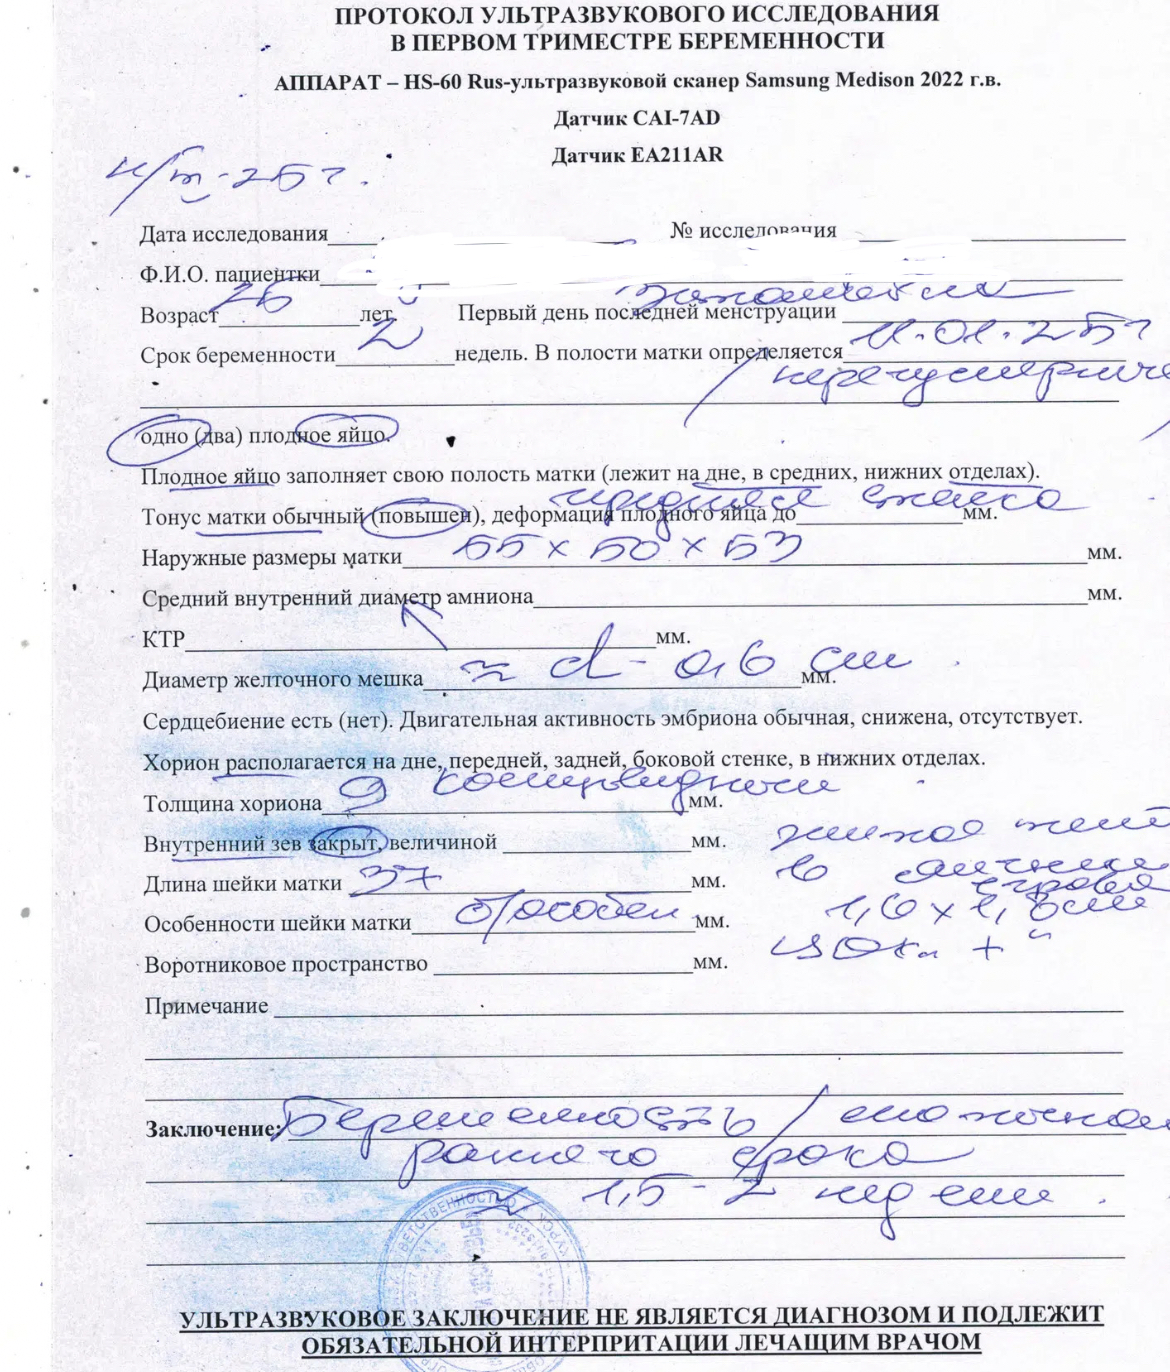 ПРОТОКОЛ УЛЬТРАЗВУКОВОГО ИССЛЕДОВАНИЯ
В ПЕРВОМ ТРИМЕСТРЕ БЕРЕМЕННОСТИ
АППАРАТ – HS-60 Rus-ультразвуковой сканер Samsung Medison 2022 г.в.
Датчик CAI-7AD
Датчик EA211AR
25 г.
Дата исследования № исследования
Ф.И.О. пациентки
Возраст 26 лет Первый день последней менструации
Срок беременности 2 недель. В полости матки определяется 11.01.25г
одно (два) плодное яйцо.
Плодное яйцо заполняет свою полость матки (лежит на дне, в средних, нижних отделах).
передняя стенка
Тонус матки обычный (повышен), деформация плодного яйца до мм.
Наружные размеры матки 55 х 50 х 53 мм.
Средний внутренний диаметр амниона мм.
КТР мм.
Диаметр желточного мешка ≈ d - 0,6 см мм.
Сердцебиение есть (нет). Двигательная активность эмбриона обычная, снижена, отсутствует.
Хорион располагается на дне, передней, задней, боковой стенке, в нижних отделах.
Толщина хориона 9 кольцевидной мм.
Внутренний зев закрыт, величиной мм. желтое тело
Длина шейки матки 37 мм. в яичнике
справа
Особенности шейки матки б/особен мм.
Воротниковое пространство мм.
Примечание
Заключение: Беременность / маточная
раннего срока
≈ 1,5 - 2 недели.
УЛЬТРАЗВУКОВОЕ ЗАКЛЮЧЕНИЕ НЕ ЯВЛЯЕТСЯ ДИАГНОЗОМ И ПОДЛЕЖИТ
ОБЯЗАТЕЛЬНОЙ ИНТЕРПРИТАЦИИ ЛЕЧАЩИМ ВРАЧОМ